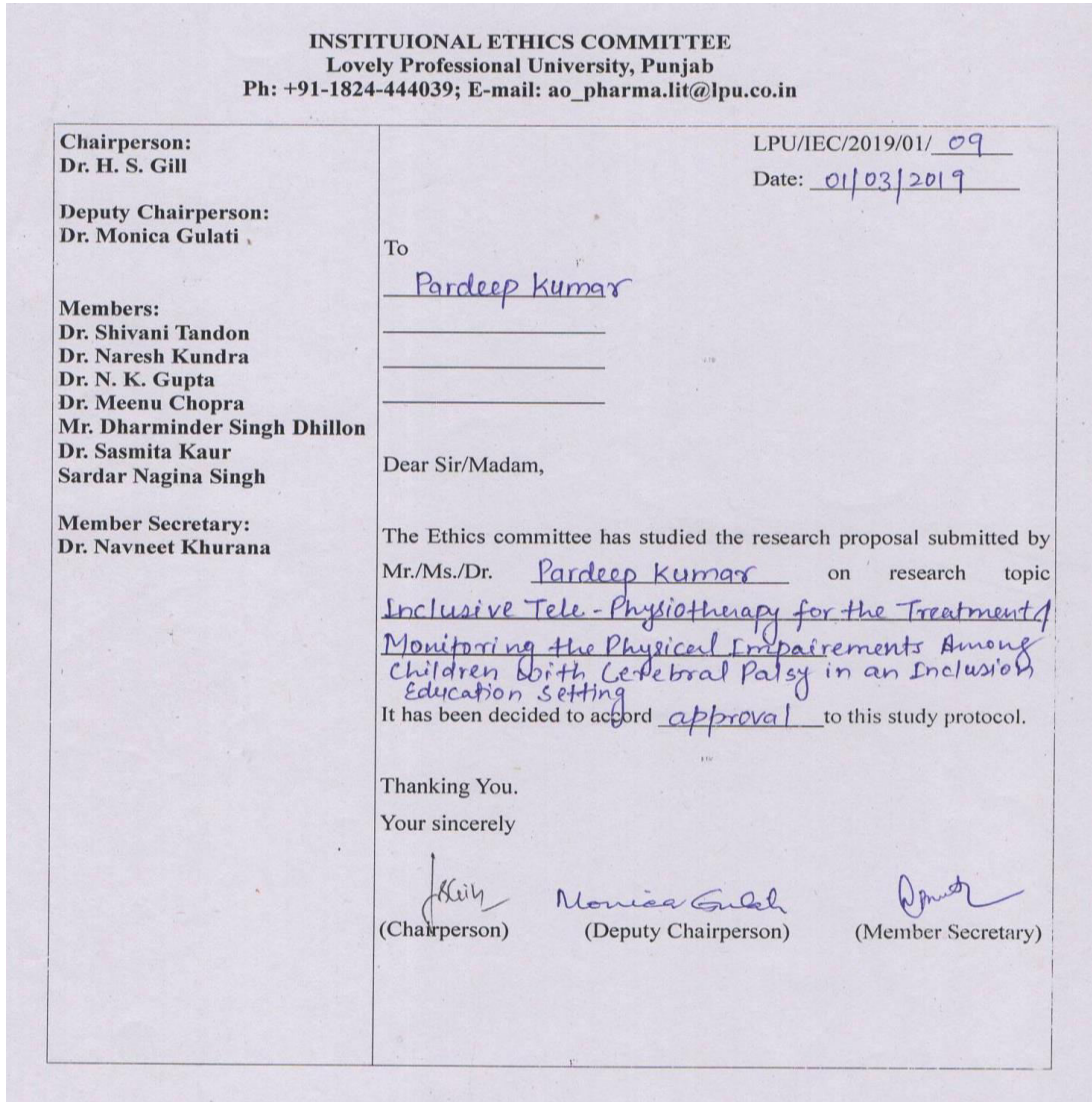 INSTITUIONAL ETHICS COMMITTEE
Lovely Professional University, Punjab
Ph: +91-1824-444039; E-mail: ao_pharma.lit@lpu.co.in
Chairperson:
Dr. H. S. Gill
Deputy Chairperson:
Dr. Monica Gulati
Members:
Dr. Shivani Tandon
Dr. Naresh Kundra
Dr. N. K. Gupta
Dr. Meenu Chopra
Mr. Dharminder Singh Dhillon
Dr. Sasmita Kaur
Sardar Nagina Singh
Member Secretary:
Dr. Navneet Khurana
LPU/IEC/2019/01/ 09
Date: 01/03/2019
To
Pardeep Kumar
Dear Sir/Madam,
The Ethics committee has studied the research proposal submitted by
Mr./Ms./Dr. Pardeep Kumar on research topic
Inclusive Tele-Physiotherapy for the Treatment/
Monitoring the Physical Impairements Among
Children With Cerebral Palsy in an Inclusion
Education Setting
It has been decided to accord approval to this study protocol.
Thanking You.
Your sincerely
Monica Gulati
(Chairperson) (Deputy Chairperson) (Member Secretary)